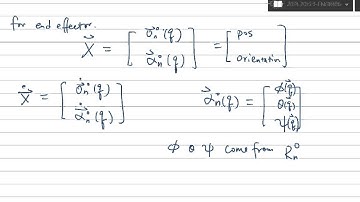 for end effector.
X⃗ = [ o⃗ₙ⁰(q) α⃗ₙ⁰(q) ] = [ pos orientation ]
Ẋ⃗ = [ ȯ⃗ₙ⁰(q) α̇⃗ₙ⁰(q) ]
α⃗ₙ⁰(q) = [ φ(q⃗) θ(q⃗) ψ(q⃗) ]
φ θ ψ come from Rₙ⁰